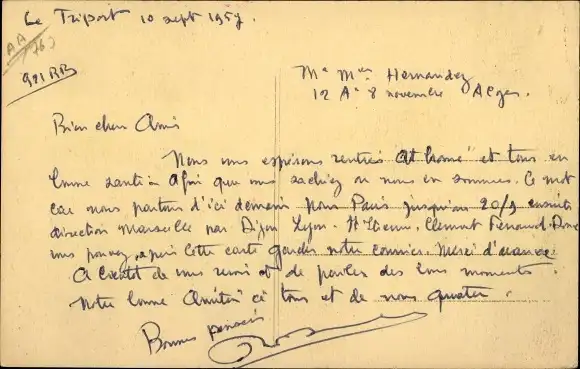 Le Triport 10 sept 1957.
AA
763
921 RB
Mr Mme Hernandez
12 Ad 8 novembre Alger.
Bien chers Amis
Nous vous espérons rentrés "at home" et tous en
bonne santé. Afin que vous sachiez où nous en sommes. Ce mot
car nous partons d'ici demain pour Paris jusqu'au 20/9 ensuite
direction Marseille par Dijon Lyon - St Etienne, Clermont Ferrand. Donc
vous pouvez, après cette carte garder notre courrier. Merci d'avance.
A bientôt de vous revoir et de parler des bons moments.
Notre bonne Amitié à tous et de nous quatre.
Bonnes pensées